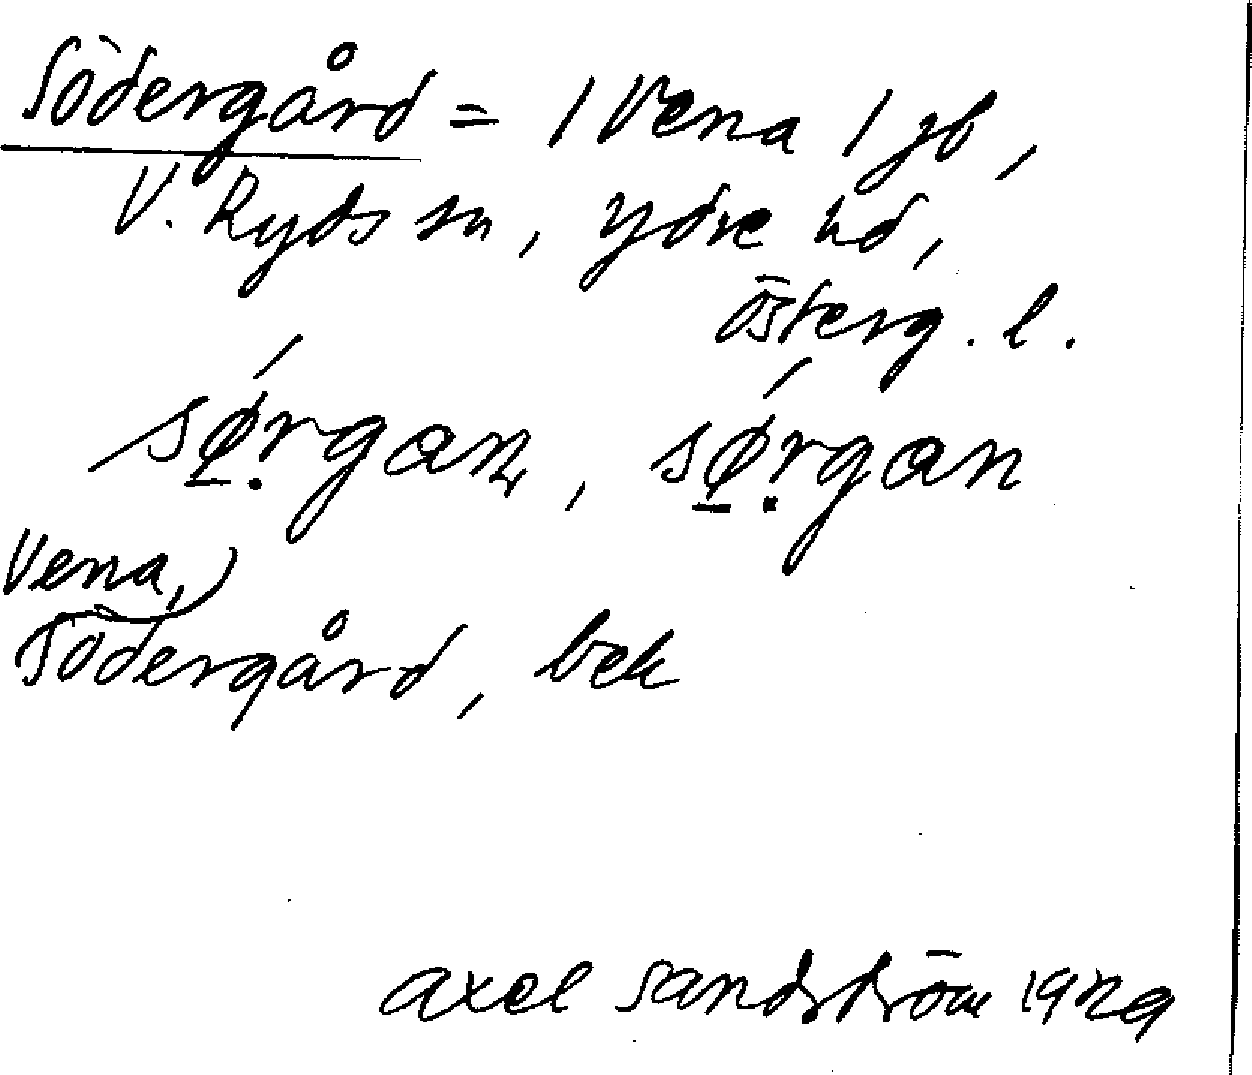 Södergård = / Vena / gb,
V. Ryds sn, Ydre hd,
Österg. l.
sǿ̱rgan, sǿ̱rgan
Vena,
Södergård, bek
Axel Sandström 1929